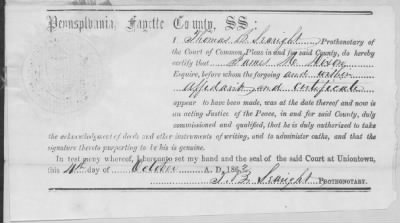 Pennsylvania, Fayette County, SS:
I Thomas B. Searight Prothonotary of
the Court of Common Pleas in and for said County, do hereby
certify that James H. Nixon
Esquire, before whom the forgoing and within
affidavit and certificate
appear to have been made, was at the date thereof and now is
an acting Justice of the Peace, in and for said County, duly
commissioned and qualified, that he is duly authorized to take
the acknowledgment of deeds and other instruments of writing, and to administer oaths, and that
the signature thereto purporting to be his is genuine.
In testimony whereof, I hereunto set my hand and the seal of the said Court at Uniontown,
this 4th day of October A. D. 1862
T. B. Searight Prothonotary.